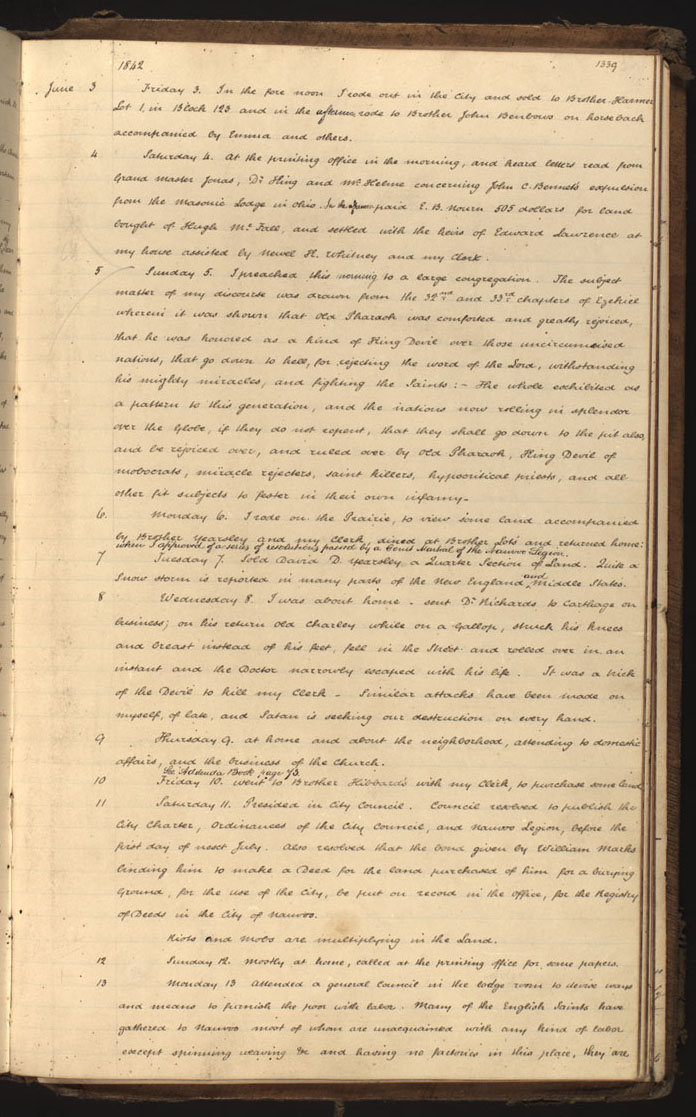 1842
1339
June 3 Friday 3. In the fore noon I rode out in the City and sold to Brother Harmer
Lot 1, in Block 123 and in the afternoon rode to Brother John Benbows on horseback
accompanied by Emma and others.
4 Saturday 4. At the printing office in the morning, and heard letters read from
Grand Master Jonas, Dr King and Mr Helme concerning John C. Bennets expulsion
from the Masonic Lodge in Ohio. In the paid E. B. Nourn 505 dollars for land
bought of Hugh Mc Fall, and settled with the heirs of Edward Lawrence at
my house assisted by Newel K. Whitney and my Clerk.
5 Sunday 5. I preached this morning to a large congregation. The subject
matter of my discourse was drawn from the 32nd and 33rd chapters of Ezekiel
wherein it was shown that old Pharaoh was comforted and greatly rejoiced,
that he was honored as a kind of King Devil over those uncircumcised
nations, that go down to hell, for rejecting the word of the Lord, withstanding
his mighty miracles, and fighting the Saints:- The whole exhibited as
a pattern to this generation, and the nations now rolling in splendor
over the Globe, if they do not repent, that they shall go down to the pit also,
and be rejoiced over, and ruled over by old Pharaoh, King Devil of
mobocrats, miracle rejecters, saint killers, hypocritical priests, and all
other fit subjects to fester in their own infamy-
6. Monday 6. I rode on the Prairie, to view some land accompanied
by Brother Yearsley and my Clerk, dined at Brother Lots and returned home:
when I approved of a series of resolutions passed by a Court Martial of the Nauvoo Legion.
7 Tuesday 7. Sold David D. Yearsley a Quarter Section of Land. Quite a
Snow storm is reported in many parts of the New England and Middle States.
8 Wednesday 8. I was about home - sent Dr Richards to Carthage on
business; on his return old Charley while on a Gallop, struck his knees
and breast instead of his feet, fell in the Street and rolled over in an
instant and the Doctor narrowly escaped with his life. It was a trick
of the Devil to kill my Clerk - Similar attacks have been made on
myself, of late, and Satan is seeking our destruction on every hand.
9 Thursday 9. at home and about the neighborhood, attending to domestic
affairs, and the business of the Church.
See Addenda Book page 73.
10 Friday 10. went to Brother Hibbards with my Clerk, to purchase some land
11 Saturday 11. Presided in City Council. Council resolved to publish the
City Charter, Ordinances of the City Council, and Nauvoo Legion, before the
first day of next July. Also resolved that the bond given by William Marks
binding him to make a Deed for the land purchased of him for a burying
Ground, for the use of the City, be put on record in the office, for the Registry
of Deeds in the City of Nauvoo.
Riots and Mobs are multiplying in the Land.
12 Sunday 12. Mostly at home, called at the printing office for some papers.
13 Monday 13 attended a general council in the lodge room to devise ways
and means to furnish the poor with labor. Many of the English Saints have
gathered to Nauvoo most of whom are unacquained with any kind of labor
except spinning weaving &c and having no factories in this place, they are